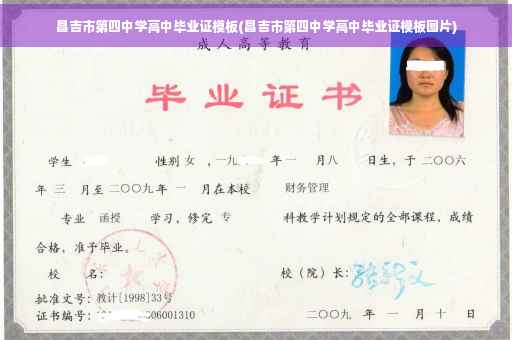 昌吉市第四中学高中毕业证模板(昌吉市第四中学高中毕业证模板图片)
成人高等教育
毕业证书
学生 性别 女 ，一九 年 一 月八 日生，于 二〇〇六
年 三 月至 二〇〇九 年 一 月在本校 财务管理
专业 函授 学习，修完 专 科教学计划规定的全部课程，成绩
合格，准予毕业。
校 名： 校（院）长：
批准文号：教计[1998]33号
证书编号： 06001310 二〇〇九 年 一 月 十 日